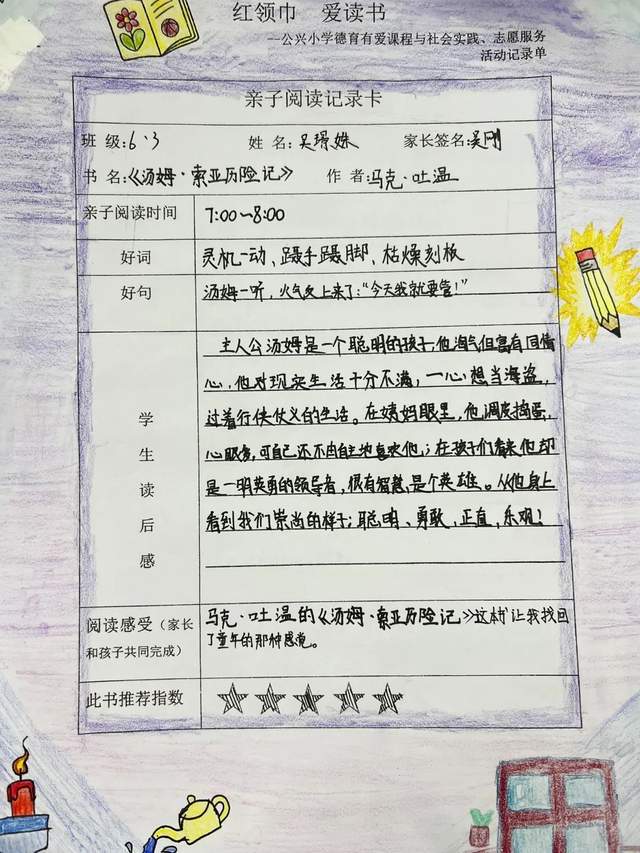 红领巾 爱读书
—公兴小学德育有爱课程与社会实践、志愿服务
活动记录单
亲子阅读记录卡
班 级:6.3 姓 名:吴 姝 家长签名:吴刚
书 名:《汤姆·索亚历险记》 作 者:马克·吐温
亲子阅读时间 7:00~8:00
好词 灵机一动、蹑手蹑脚、枯燥刻板
好句 汤姆一听,火气又上来了:“今天我就要管!”
学生读后感
主人公汤姆是一个聪明的孩子,他淘气但富有同情
心,他对现实生活十分不满,一心想当海盗,
过着行侠仗义的生活。在姨妈眼里,他调皮捣蛋,
心眼多,可自己还不由自主地喜欢他,;在孩子们看来他却
是一明英勇的领导者,很有智慧,是个英雄。从他身上
看到我们崇尚的样子;聪明、勇敢,正直,乐观!
阅读感受(家长
和孩子共同完成)
马克·吐温的《汤姆·索亚历险记》这本书让我找回
了童年的那种感觉。
此书推荐指数